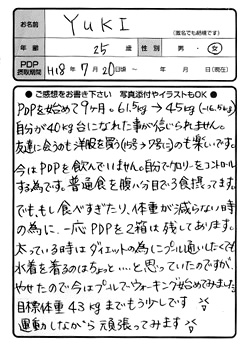 お名前 YUKI
(匿名でも結構です)
年齢 25歳 性別 男・女
PDP摂取期間 H18年7月20日頃〜 年 月 日(現在)
●ご感想をお書き下さい 写真添付やイラストもOK●
PDPを始めて9ヶ月。61.5kg→45kg(-16.5kg)
自分が40kg台になれた事が信じられません。
友達に会うのも洋服を買う(15号→7号に)のも楽しいです。
今はPDPを飲んでいません。自分でカロリーをコントロール
する為です。普通食を腹八分目で3食摂ってます。
でも、もし食べすぎたり、体重が減らない時
の為に、一応PDPを2箱は残してあります。
太っている時はダイエットの為にプール通いしたくても
水着を着るのはちょっと…と思っていたのですが、
やせたので今はプールでウォーキング始めてみました。
目標体重43kgまでもう少しです
運動しながら頑張ってみます